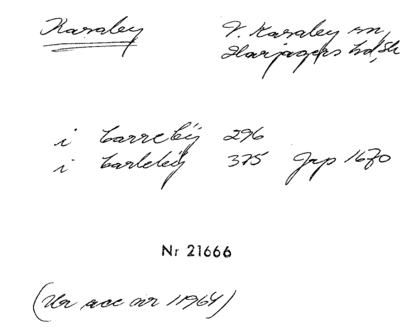 Karaby
V. Karaby sn,
Harjagers hd, Sk
i Carrebÿ 296
i Carlebÿ 375 Jrp 1670
Nr 21666
(Ur acc nr 1/1964)